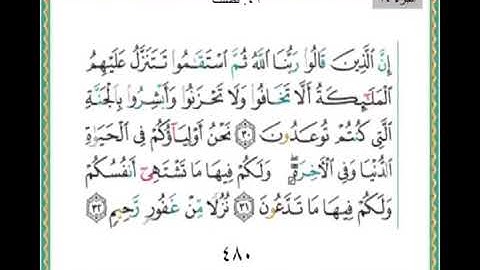 ٤١. فصلت
إِنَّ ٱلَّذِينَ قَالُوا۟ رَبُّنَا ٱللَّهُ ثُمَّ ٱسْتَقَٰمُوا۟ تَتَنَزَّلُ عَلَيْهِمُ
ٱلْمَلَٰٓئِكَةُ أَلَّا تَخَافُوا۟ وَلَا تَحْزَنُوا۟ وَأَبْشِرُوا۟ بِٱلْجَنَّةِ
ٱلَّتِى كُنتُمْ تُوعَدُونَ ۝٣٠ نَحْنُ أَوْلِيَآؤُكُمْ فِى ٱلْحَيَوٰةِ
ٱلدُّنْيَا وَفِى ٱلْءَاخِرَةِ ۖ وَلَكُمْ فِيهَا مَا تَشْتَهِىٓ أَنفُسُكُمْ
وَلَكُمْ فِيهَا مَا تَدَّعُونَ ۝٣١ نُزُلًا مِّنْ غَفُورٍ رَّحِيمٍ ۝٣٢
٤٨٠